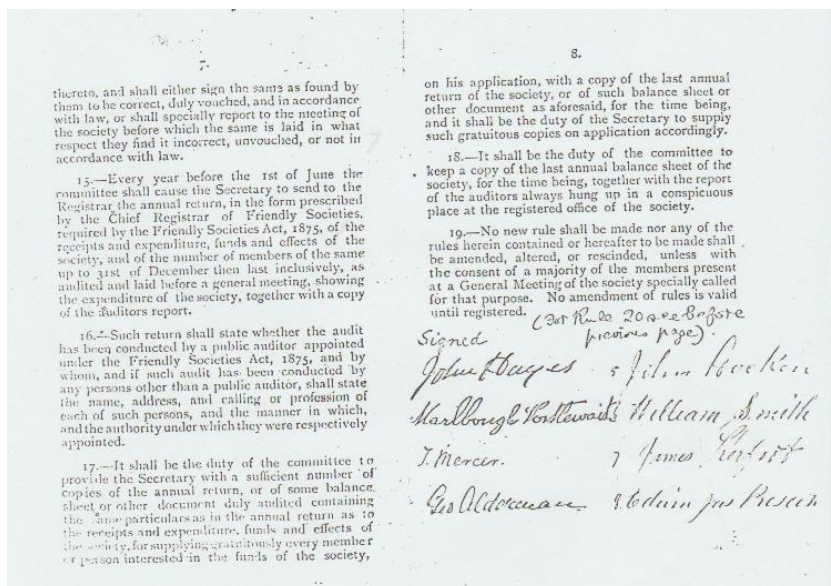 7.
thereto, and shall either sign the same as found by
them to be correct, duly vouched, and in accordance
with law, or shall specially report to the meeting of
the society before which the same is laid in what
respect they find it incorrect, unvouched, or not in
accordance with law.
15.—Every year before the 1st of June the
committee shall cause the Secretary to send to the
Registrar the annual return, in the form prescribed
by the Chief Registrar of Friendly Societies,
required by the Friendly Societies Act, 1875, of the
receipts and expenditure, funds and effects of the
society, and of the number of members of the same
up to 31st of December then last inclusively, as
audited and laid before a general meeting, showing
the expenditure of the society, together with a copy
of the Auditors report.
16.—Such return shall state whether the audit
has been conducted by a public auditor appointed
under the Friendly Societies Act, 1875, and by
whom, and if such audit has been conducted by
any persons other than a public auditor, shall state
the name, address, and calling or profession of
each of such persons, and the manner in which,
and the authority under which they were respectively
appointed.
17.—It shall be the duty of the committee to
provide the Secretary with a sufficient number of
copies of the annual return, or of some balance
sheet or other document duly audited containing
the same particulars as in the annual return as to
the receipts and expenditure, funds and effects of
the society, for supplying gratuitously every member
or person interested in the funds of the society,
8.
on his application, with a copy of the last annual
return of the society, or of such balance sheet or
other document as aforesaid, for the time being,
and it shall be the duty of the Secretary to supply
such gratuitous copies on application accordingly.
18.—It shall be the duty of the committee to
keep a copy of the last annual balance sheet of the
society, for the time being, together with the report
of the auditors always hung up in a conspicuous
place at the registered office of the society.
19.—No new rule shall be made nor any of the
rules herein contained or hereafter to be made shall
be amended, altered, or rescinded, unless with
the consent of a majority of the members present
at a General Meeting of the society specially called
for that purpose. No amendment of rules is valid
until registered.
(For Rule 20 see before
previous page).
Signed
John Hayes 5 John
William Smith
J. Mercer. 7 James
Geo Alderman 8 Edwin Jas